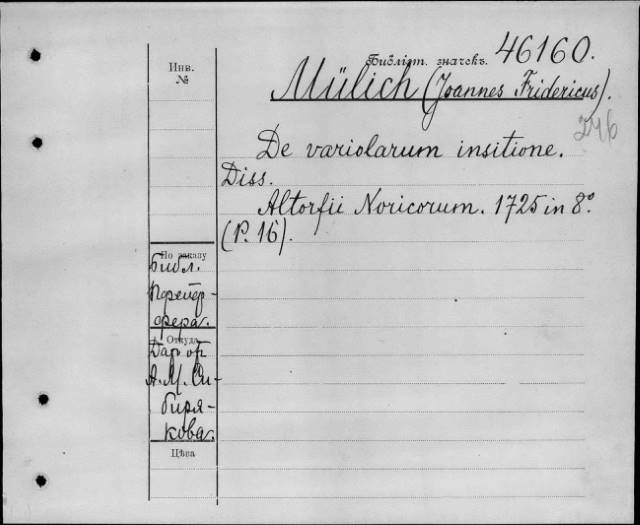 Библіот. значекъ. 46160.
Инв.
№
Mülich (Joannes Fridericus).
246
De variolarum insitione.
Diss.
Altorfii Noricorum. 1725 in 8º.
(P. 16).
По заказу
Библ.
Пфейф-
фера.
Откуда
Дар от
А. М. Си-
биря-
кова.
Цѣна